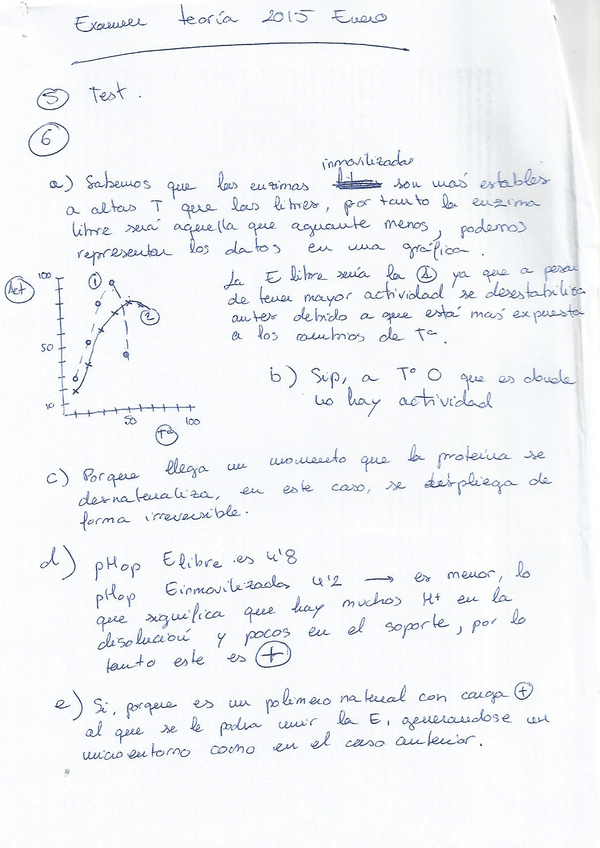 Examen teoría 2015 Enero
5 Test.
6
inmovilizadas
a) Sabemos que las enzimas son más estables
a altas T que las libres, por tanto la enzima
libre será aquella que aguante menos, podemos
representar los datos en una gráfica.
La E libre sería la 1 ya que a pesar
de tener mayor actividad se desestabiliza
antes debido a que está más expuesta
a los cambios de Tª.
100
Act
50
10
1
2
50
100
Tª
b) Sip, a Tº 0 que es donde
no hay actividad
c) Porque llega un momento que la proteína se
desnaturaliza, en este caso, se despliega de
forma irreversible.
d) pHop E libre es 4'8
pHop E inmovilizadas 4'2 → es menor, lo
que significa que hay muchos H+ en la
disolución y pocos en el soporte, por lo
tanto este es +
e) Si, porque es un polímero natural con carga +
al que se le podría unir la E, generandose un
microentorno como en el caso anterior.